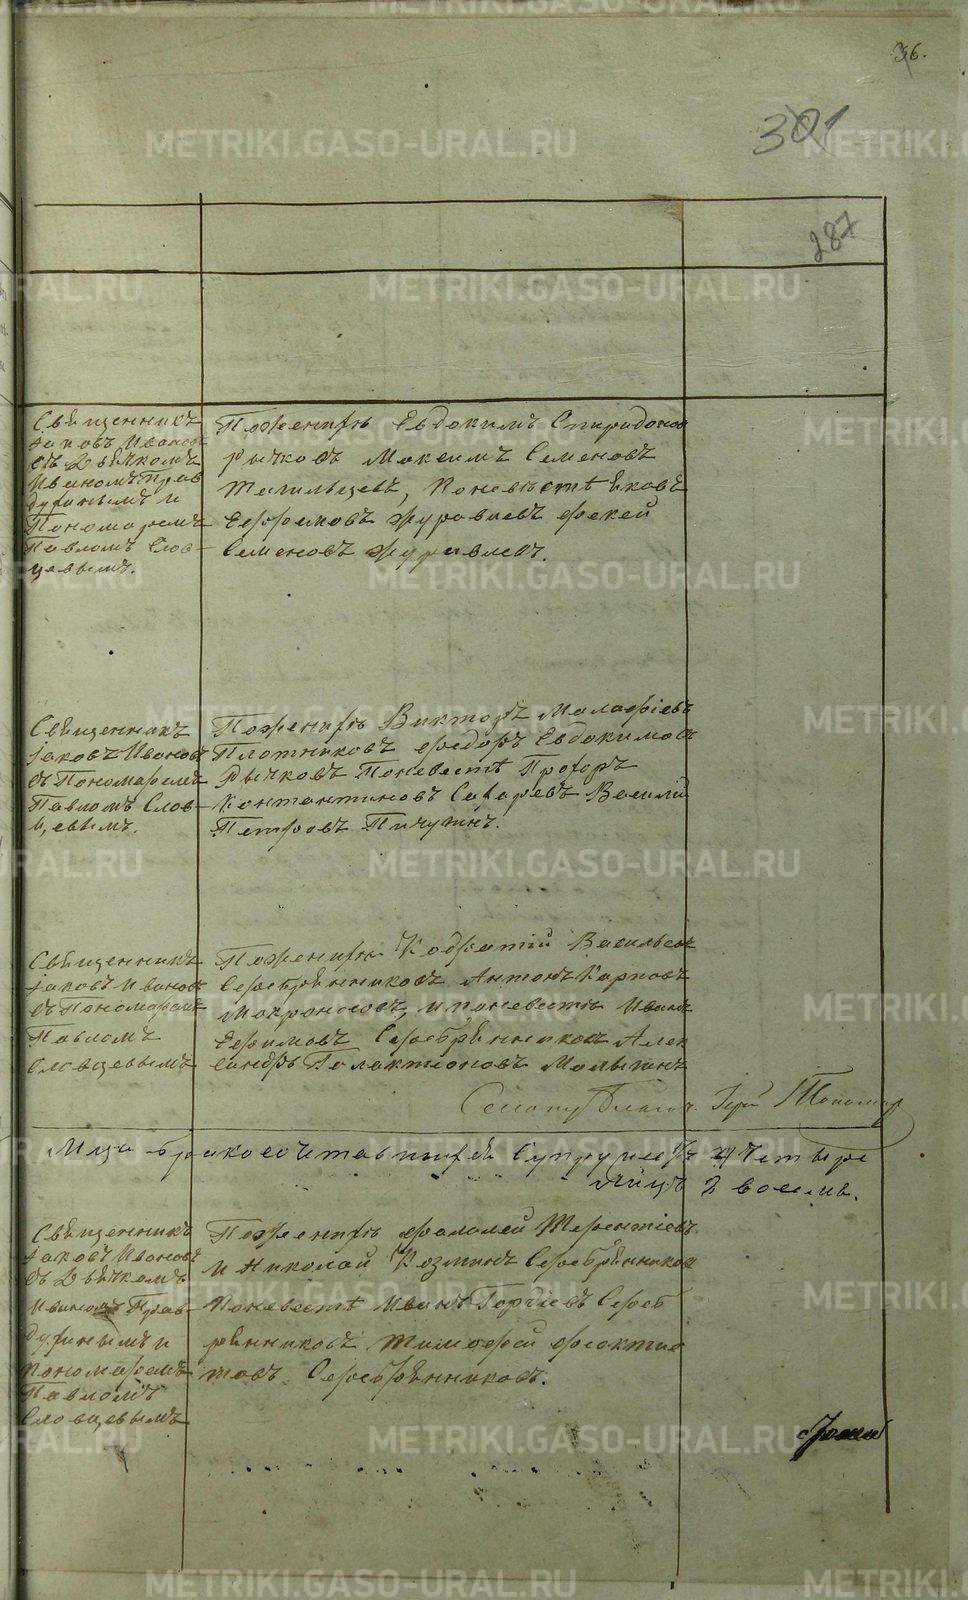 36.
301
287
Священникъ
Іаковъ Ивановъ
съ Дьячкомъ
Иваномъ Прав
духинымъ и
Пономаремъ
Павломъ Слов
цевымъ.
Поженихѣ Евдокимъ Спиридоновъ
Рычковъ Максимъ Семеновъ
Тагильцевъ, Поневѣстѣ Яковъ
Ефремовъ Журавлевъ Фокей
Семеновъ Журавлевъ.
Священникъ
Іаковъ Ивановъ
съ Пономаремъ
Павломъ Слов
цевымъ.
Поженихѣ Викторъ Малафіевъ
Плотниковъ Федоръ Евдокимовъ
Рычковъ Поневестѣ Прохоръ
Контантиновъ Сахаревъ Василій
Петровъ Пичугинъ.
Священникъ
Іаковъ Ивановъ
съ Пономаремъ
Павломъ
Словцевымъ
Поженихѣ Кодратій Васильевъ
Серебрѣнниковъ Антонъ Карповъ
Макроносовъ, и поневестѣ Иванъ
Ефимовъ Серебрѣнниковъ Алек
сандръ Галактіоновъ Малыгинъ
бракосочетавшихся Супруговъ 4 Четыре
Лицъ 8 восемь.
Священникъ
Іаковъ Ивановъ
съ Дьячкомъ
Иваномъ Прав
духинымъ и
пономаремъ
Павломъ
Словцевымъ
Поженихѣ Фалалей Терентіевъ
и Николай Козминъ Серебрѣнниковы
Поневестѣ Иванъ Горчіевъ Сереб
рѣнниковъ Тимофей Феокти
товъ Серебрѣнниковъ.